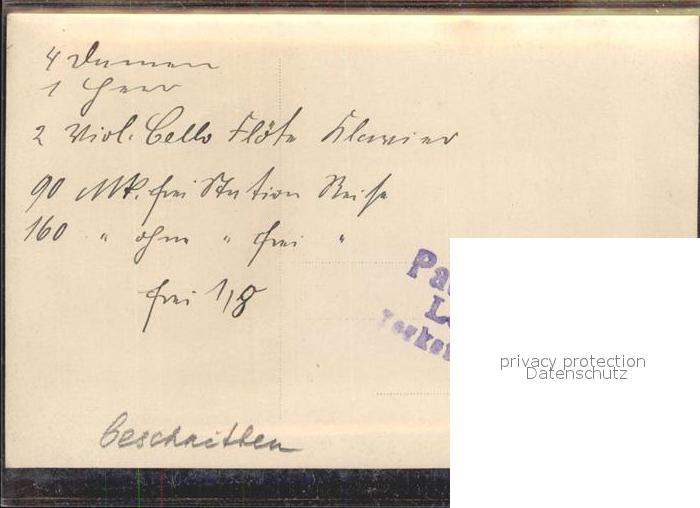 4 Damen
1 Herr
2 Viol. Cello Flöte Klavier
90 Mk. frei Station Reise
160 " ohne " frei "
frei 1/8
beschnitten
privacy protection
Datenschutz